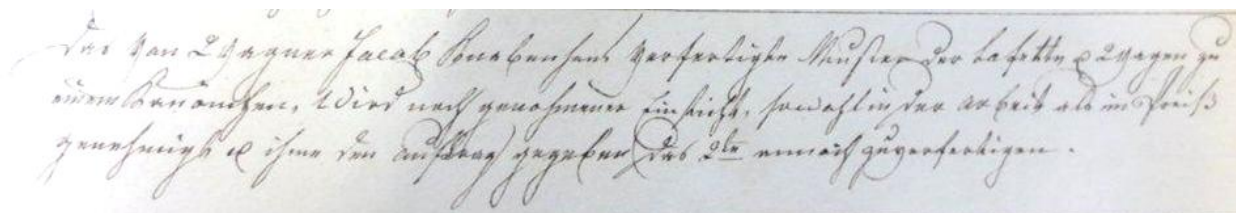 Das von Wagner Jacob Knabenhans verfertigte Muster der Lafette u Wagen zu
einem Kanönchen, wird nach genohmener Einsicht, sowohl in der Arbeit als im Preiß
genehmigt u ihme den Auftrag gegeben das 2te annoch zuverfertigen.